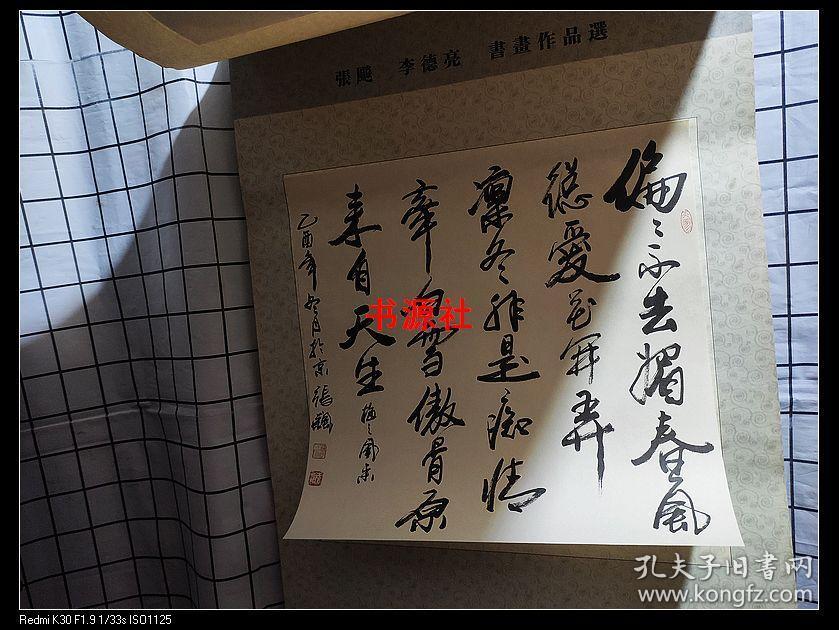 張飚　李德亮　書畫作品選
偏々不去媚春風
總愛花開弄
凜冬非是痴情
牽白雪傲骨原
来自天生
乙酉年冬月於京張飚
书源社
孔夫子旧书网
www.kongfz.com
Redmi K30 F1.9 1/33s ISO1125